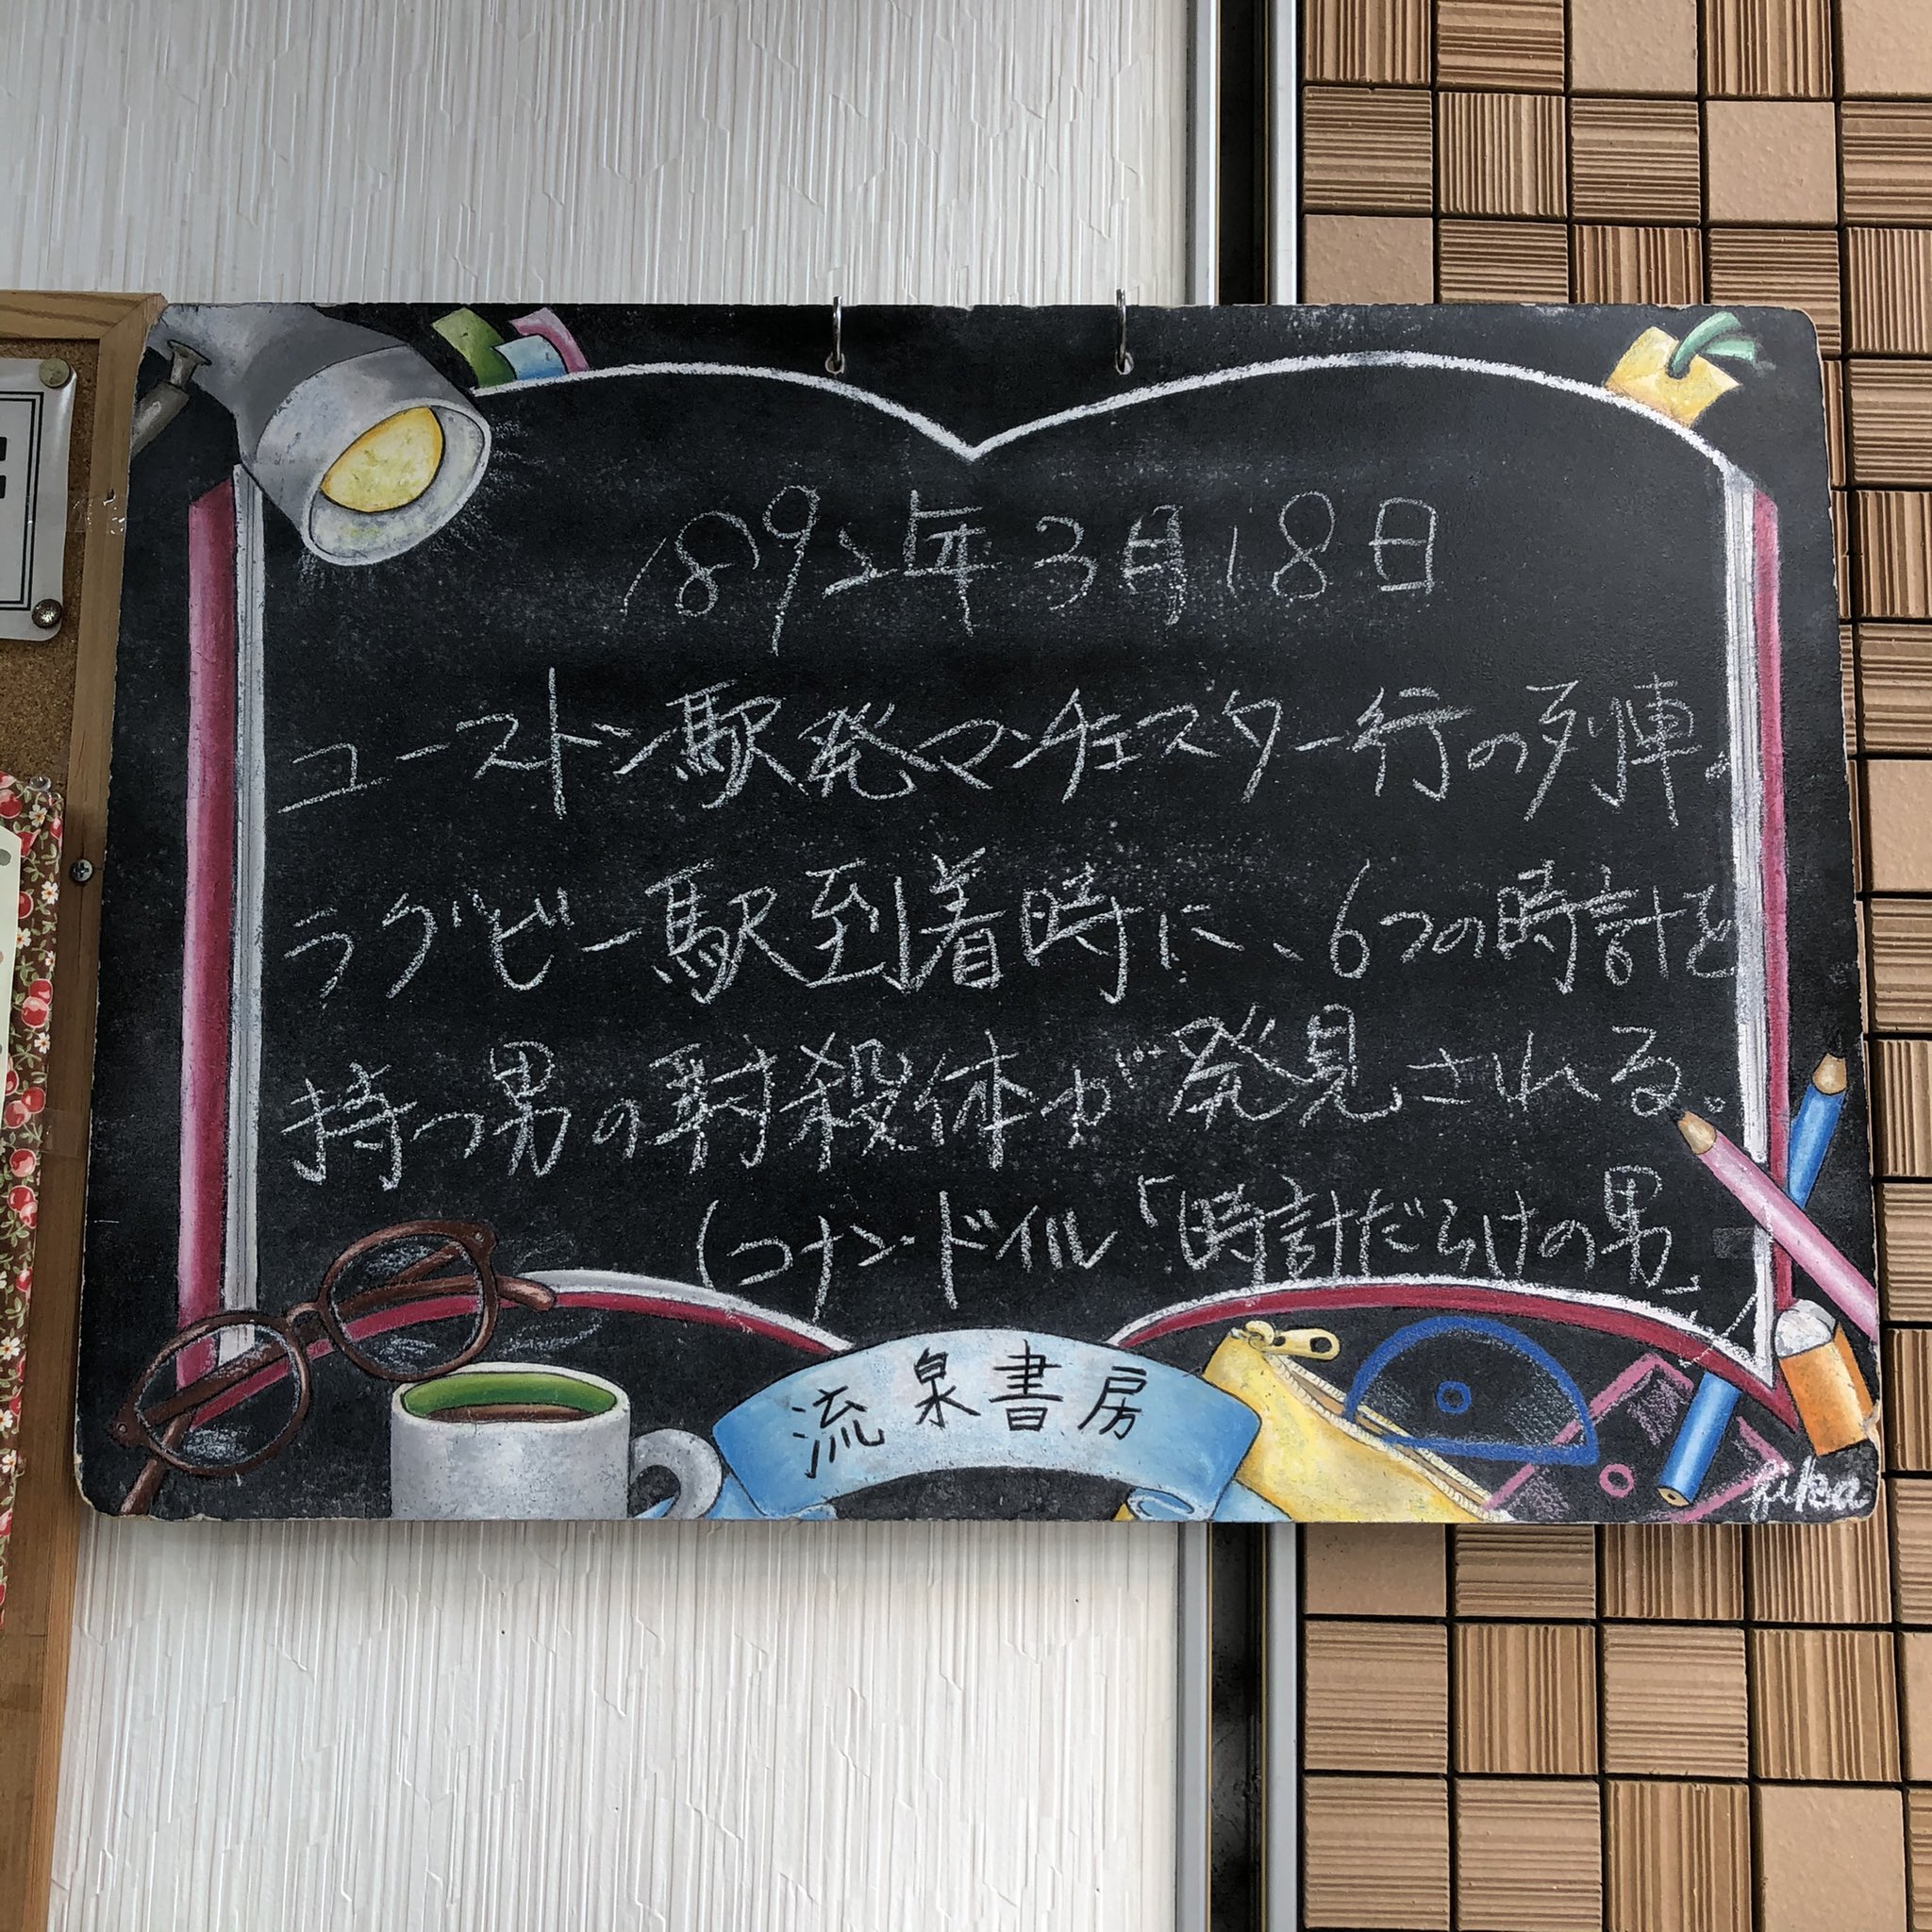 1892年3月18日
ユーストン駅発マンチェスター行の列車。
ラグビー駅到着時に、6つの時計を
持つ男の射殺体が発見される。
(コナン・ドイル「時計だらけの男」)
流泉書房
fika